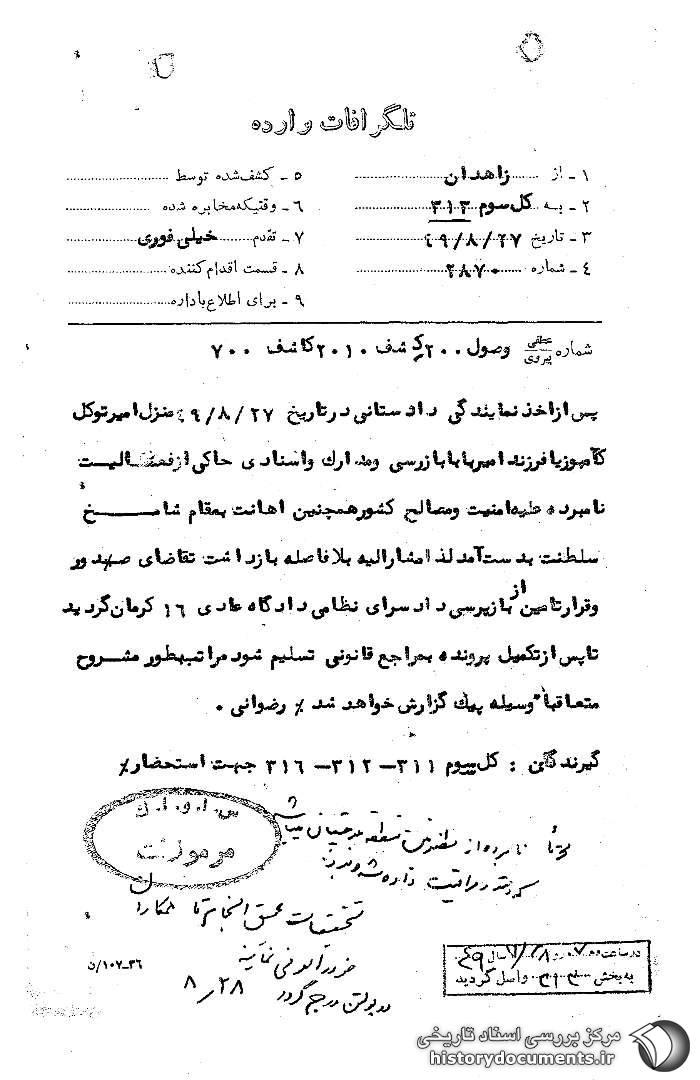 تلگرافات وارده
۱ - از زاهدان
۲ - به کل سوم ۳۱۳
۳ - تاریخ ۴۹/۸/۲۷
۴ - شماره ۲۸۷۰
۵ - کشف شده توسط
۶ - وقتیکه مخابره شده
۷ - تقدم خیلی فوری
۸ - قسمت اقدام کننده
۹ - برای اطلاع باداره
شماره عطفی پیروی وصول ۲۰۰۰ کشف ۲۰۱۰ کاشف ۷۰۰
پس از اخذ نمایندگی دادستانی در تاریخ ۴۹/۸/۲۷ منزل امیر توکل
کامبوزیا فرزند امیر بابا بازرسی ومدارک واسنادی حاکی از فعالیت
نامبرده علیه امنیت ومصالح کشور همچنین اهانت بمقام شامخ
سلطنت بدست آمد لذا مشارالیه بلافاصله بازداشت تقاضای صدور
وقرار تامین از بازپرسی دادسرای نظامی دادگاه عادی ۱۶ کرمان گردید
تا پس از تکمیل پرونده بمراجع قانونی تسلیم شود مراتب بطور مشروح
متعاقبا" وسیله پیک گزارش خواهد شد ٪ رضوانی .
گیرندگان : کل سوم ۳۱۱ - ۳۱۲ - ۳۱۶ جهت استحضار٪
س.ا.و.ا.ک
مرموزات
نامبرده از
داده شود
تحقیقات عمیق
نمایند
در بولتن درج گردد ۸/۲۸
در ساعت روز سال ۴۹
به بخش ۳۱۳ واصل گردید
۳۶-۱۰۷/ن
مرکز بررسی اسناد تاریخی
historydocuments.ir